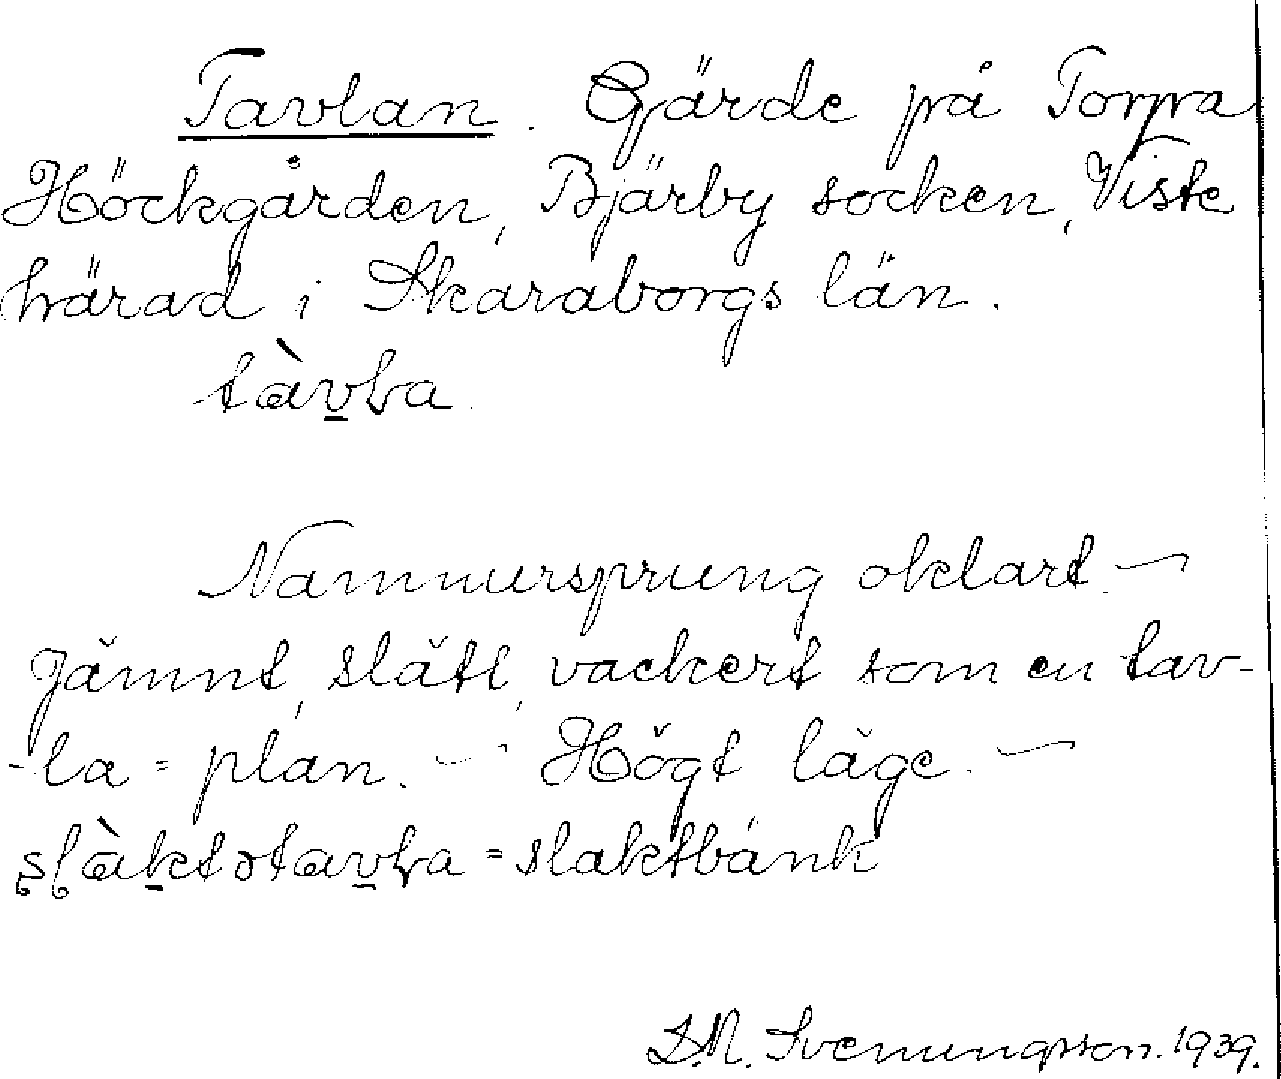 Tavlan. Gärde på Torpa
Höckgården, Bjärby socken, Viste
härad i Skaraborgs län.
tàvɫa.
Namnursprung oklart. —
Jämnt, slätt, vackert som en tav-
-la = plan. — Högt läge. —
= slaktbänk
S.M. Svenungsson. 1939.